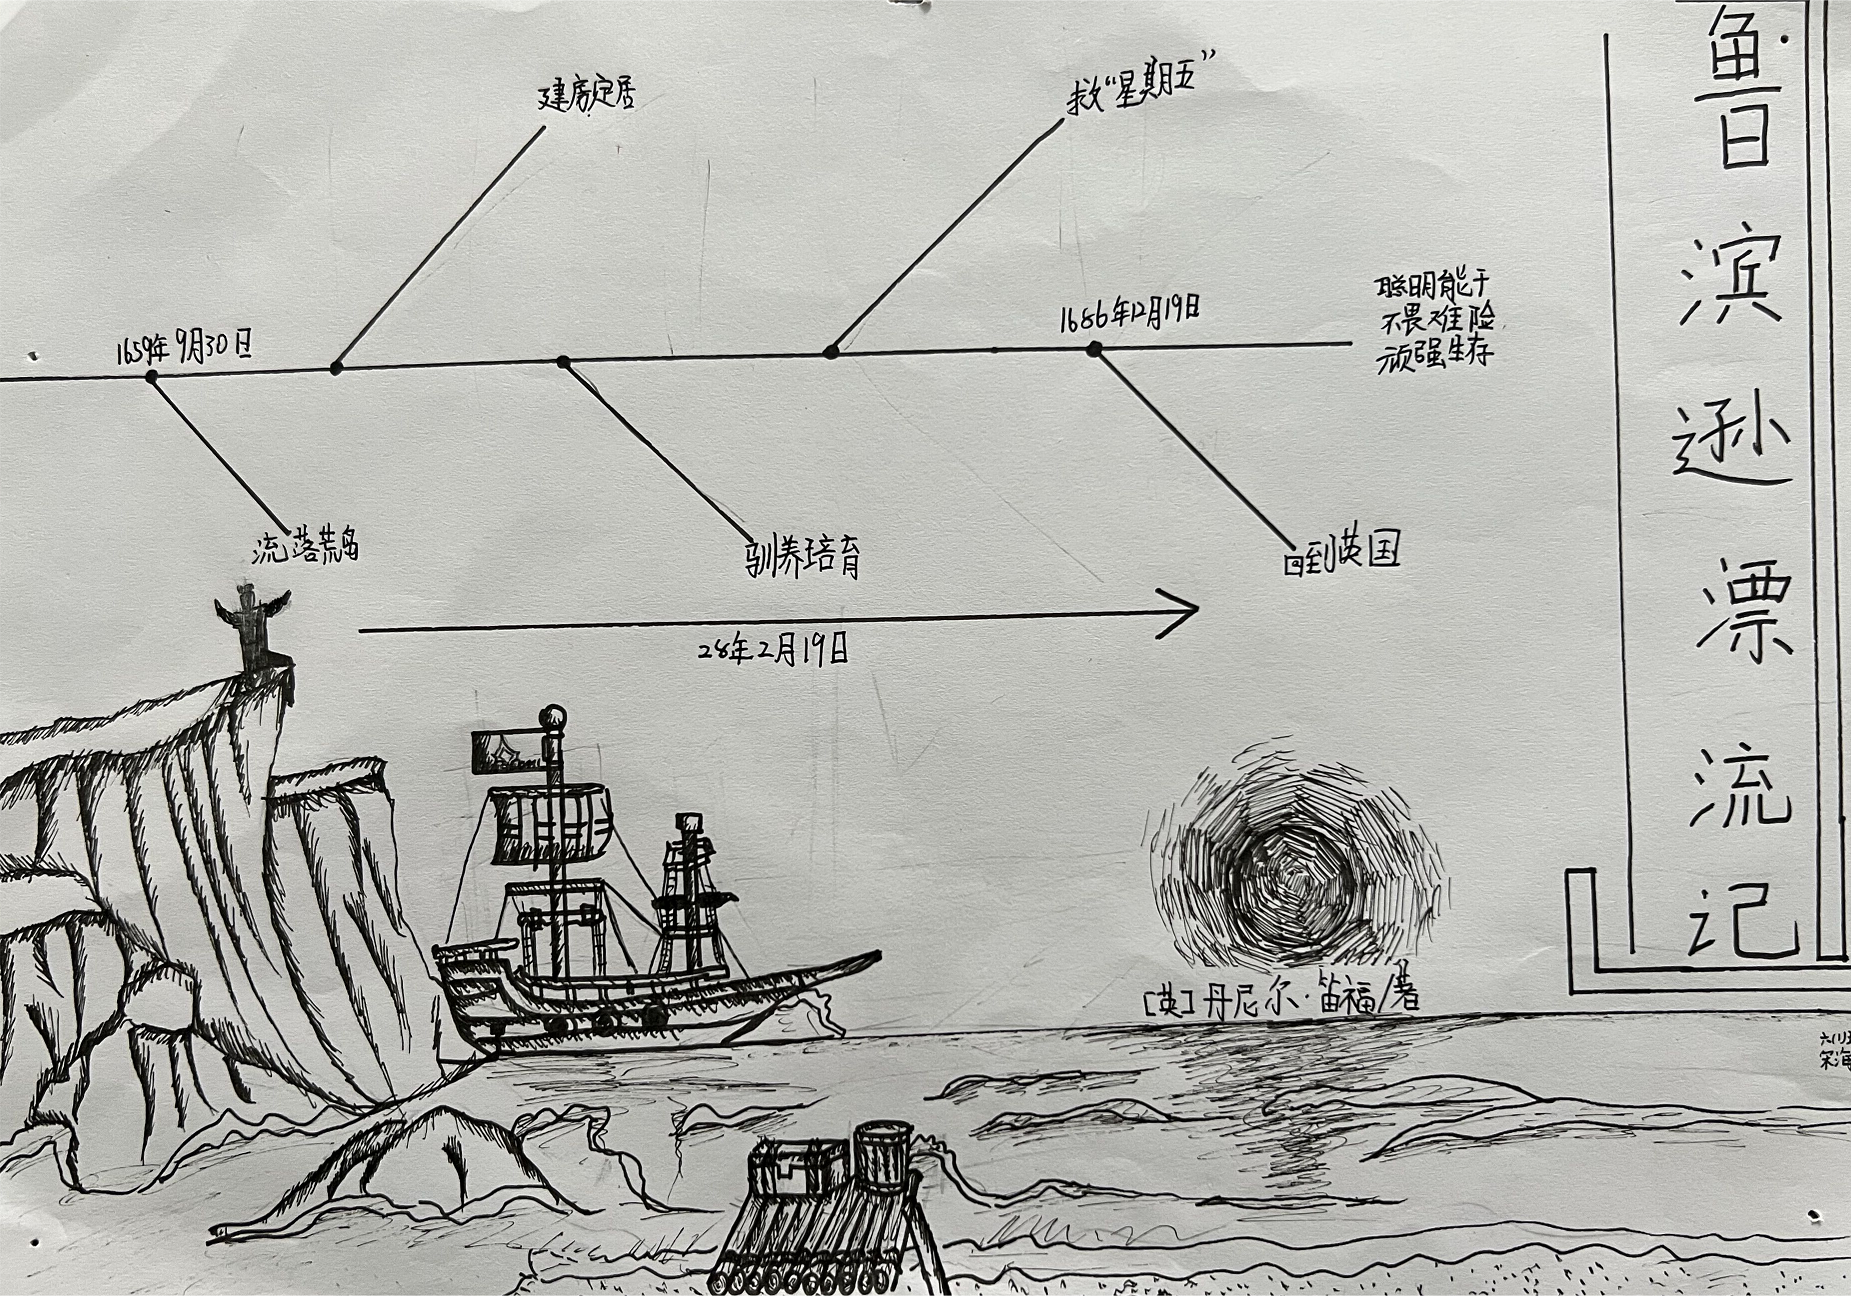 鲁滨逊漂流记
建房定居
救“星期五”
1659年9月30日
1686年12月19日
聪明能干
不畏难险
顽强生存
流落荒岛
驯养培育
回到英国
28年2月19日
[英]丹尼尔·笛福/著